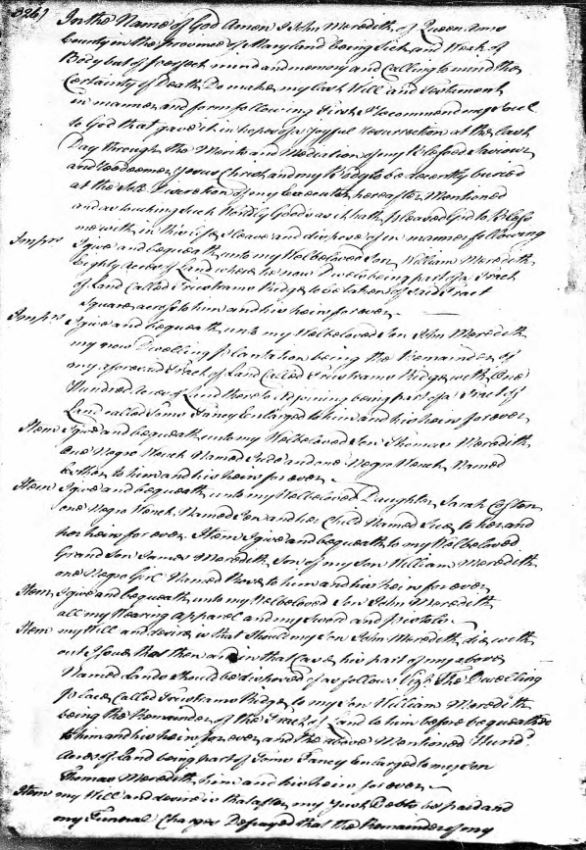 326)
In the Name of God Amen I John Meredith of Queen Anns
County in the province of Maryland being Sick and Weak of
Body but of perfect mind and memory and Calling to mind the
Certainty of Death Do make my Last Will and Testament
in manner and form following First I recommend my Soul
to God that gave it in hopes of a Joyful resurrection at the Last
Day through the Merits and Mediation of my Blessed Saviour
and redeemer Jesus Christ and my Body to be decently buried
at the Discretion of my Executor hereafter Mentioned
and as touching Such Worldly Goods as it hath pleased God to bless
me with in this life I leave and dispose of in manner following
Impr I give and bequeath unto my Welbeloved Son William Meredith
Eighty Acres of Land where he now Dwels being part of a Tract
of Land Called Tristrams Ridge to be taken of Said Tract
Square across to him and his heirs for ever
Impr I give and bequeath unto my Welbeloved Son John Meredith
my now Dwelling Plantation being the Remainder of
my aforesaid Tract of Land Called Tristrams Ridge with One
Hundred Acres of Land thereto Adjoining being part of a Tract of
Land called Sims Fancy Enlarged to him and his heirs for ever
Item I give and bequeath unto my Welbeloved Son Thomas Meredith
One Negro Wench Named and one Negro Wench Named
to him and his heirs for ever
Item I give and bequeath unto my Welbeloved Daughter Sarah Coston
one Negro Wench Named and her Child Named to her and
her heirs for ever Item I give and bequeath to my Welbeloved
Grand Son James Meredith Son of my Son William Meredith
one Negro Girl Named to him and his heirs for ever
Item I give and bequeath unto my Welbeloved Son John Meredith
all my Wearing Apparel and my Sword and pistols
Item my Will and desire is that Should my Son John Meredith die with
out Issue that then and in that Case his part of my above
Named Lands Should be disposed of as follows the Dwelling
place Called Tristrams Ridge to my Son William Meredith
being the Remainder of the Tract of Land to him before bequeathed
to him and his heirs for ever and the above Mentioned Hund
Acres of Land being part of Sims Fancy Enlarged to my Son
Thomas Meredith him and his heirs for ever
Item my Will and desire is that after my Just Debts be paid and
my Funeral Charges Defrayed that the Remainder of my